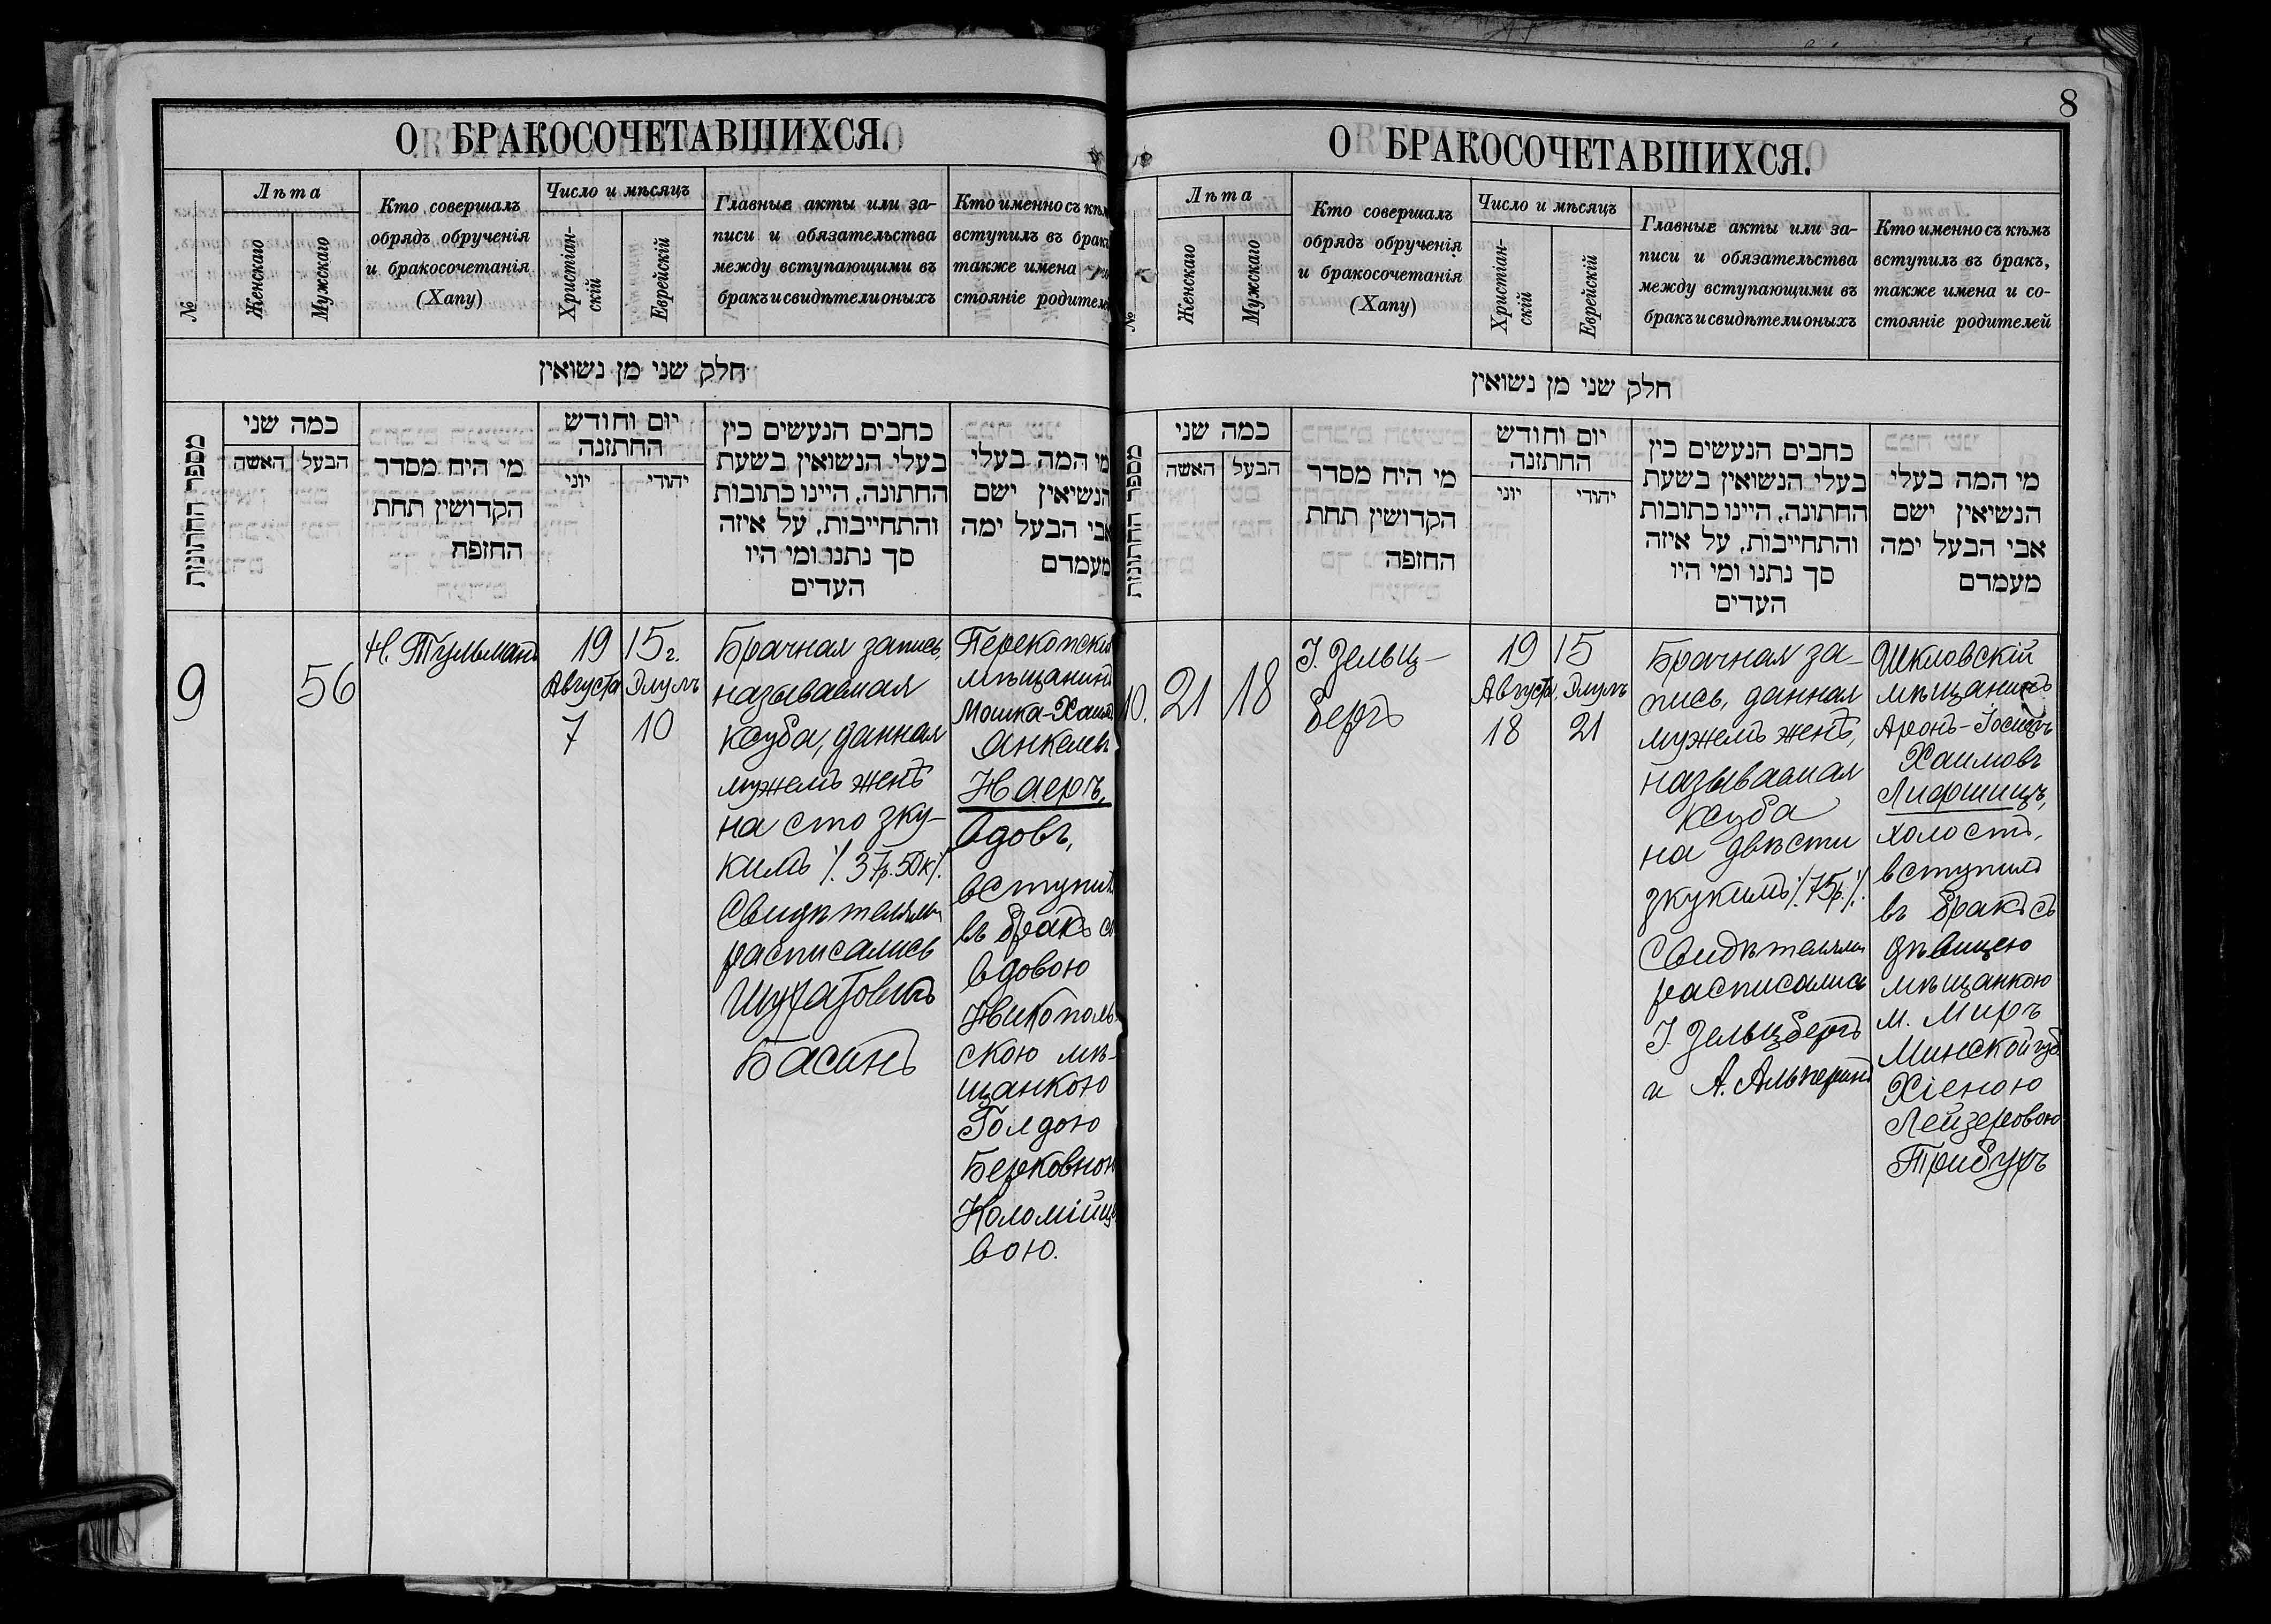 8
О БРАКОСОЧЕТАВШИХСЯ.
№
Лѣта
Женскаго
Мужскаго
Кто совершалъ
обрядъ обрученія
и бракосочетанія
(Хапу)
Число и мѣсяцъ
Христіан-
скій
Еврейскій
Главные акты или за-
писи и обязательства
между вступающими въ
бракъ и свидѣтели оныхъ
Кто именно съ кѣм
вступилъ въ брак
также имена
стояніе родителе
חלק שני מן נשואין
מספר החתונות
כמה שני
האשה
הבעל
מי היח מסדר
הקדושין תחת
החזפה
יום וחודש
החתזנה
יוני
יהודי
כחבים הנעשים כין
בעלי הנשואין בשעת
החתונה, היינו כתובות
והתחייבות, על איזה
סך נתנו ומי היו
העדים
מי המה בעלי
הנשיאין ישם
אבי הבעל ימה
מעמדם
9
56
Н. Тульманъ
19 15 г.
Августа Элулъ
7 10
Брачная запись,
называемая
ксуба, данная
мужемъ женѣ
на сто зку-
кимъ /. 37р. 50к /.
Свидѣтелями
расписались
Басинъ
Перекопскій
мѣщанинъ
Мошка-Хаим
Янкелевъ
Наеръ,
вдовъ,
вступил
въ бракъ с
вдовою
Никополь
скою мѣ-
щанкою
Голдою
Берковною
Коломійце
вою.
О БРАКОСОЧЕТАВШИХСЯ.
№
Лѣта
Женскаго
Мужскаго
Кто совершалъ
обрядъ обрученія
и бракосочетанія
(Хапу)
Число и мѣсяцъ
Христіан-
скій
Еврейскій
Главные акты или за-
писи и обязательства
между вступающими въ
бракъ и свидѣтели оныхъ
Кто именно съ кѣмъ
вступилъ въ бракъ,
также имена и со-
стояніе родителей
חלק שני מן נשואין
מספר החתונות
כמה שני
האשה
הבעל
מי היח מסדר
הקדושין תחת
החזפה
יום וחודש
החתזנה
יוני
יהודי
כחבים הנעשים כין
בעלי הנשואין בשעת
החתונה, היינו כתובות
והתחייבות, על איזה
סך נתנו ומי היו
העדים
מי המה בעלי
הנשיאין ישם
אבי הבעל ימה
מעמדם
10.
21
18
І. Зельц-
бергъ
19 15
Августа. Элулъ
18 21
Брачная за-
пись, данная
мужемъ женѣ,
называемая
ксуба
на двѣсти
зкукимъ /. 75р. /.
Свидѣтелями
расписались
І. Зельцбергъ
и А. Альперинъ
Шкловскій
мѣщанинъ
Аронъ-Іосифъ
Хаимовъ
Лифшицъ,
холостъ,
вступилъ
въ бракъ съ
дѣвицею
мѣщанкою
м. Миръ
Минской губ.
Хіеною
Лейзеровою
Трибухъ